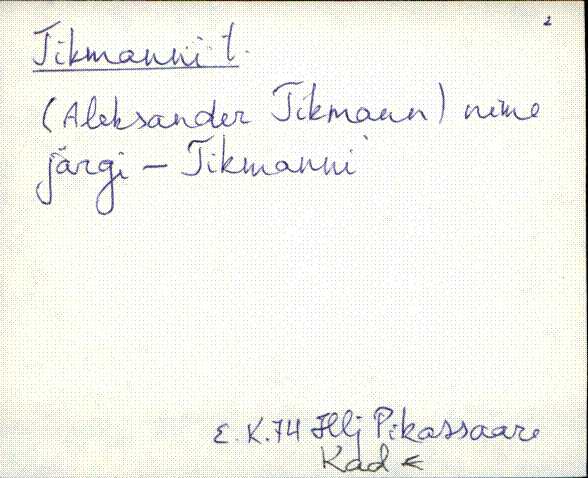 2
Tikmanni t.
(Aleksander Tikmann) nime
järgi – Tikmanni
E. K. 74 Hlj Pikassaare
Kad <